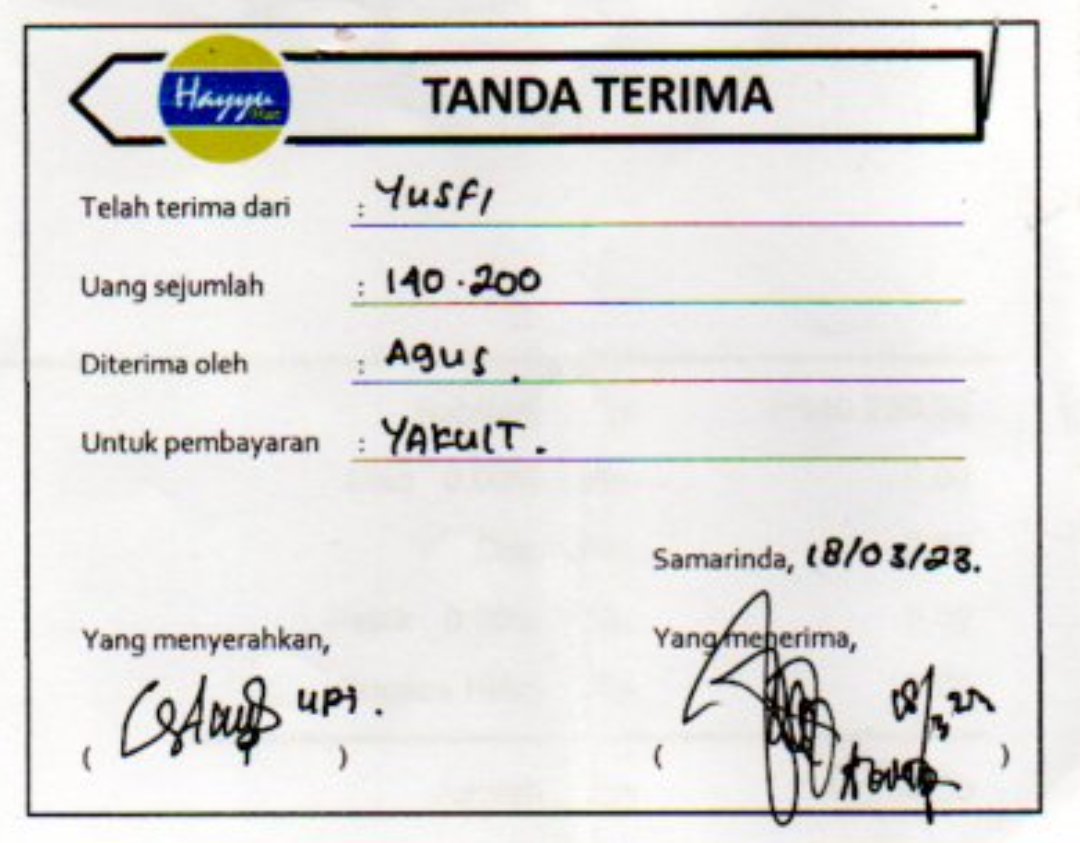 Hayyu Mart
TANDA TERIMA
Telah terima dari : YUSFI
Uang sejumlah : 140.200
Diterima oleh : Agus.
Untuk pembayaran : YAKULT.
Samarinda, 18/03/23.
Yang menyerahkan,
Yang menerima,
UPI.
18/3 23
( )
( )